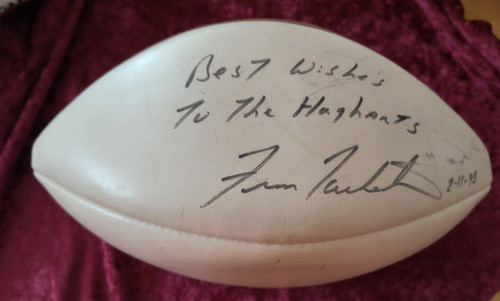 Best Wishes
To The Haghorts
Fran Tarkenton
2-11-93